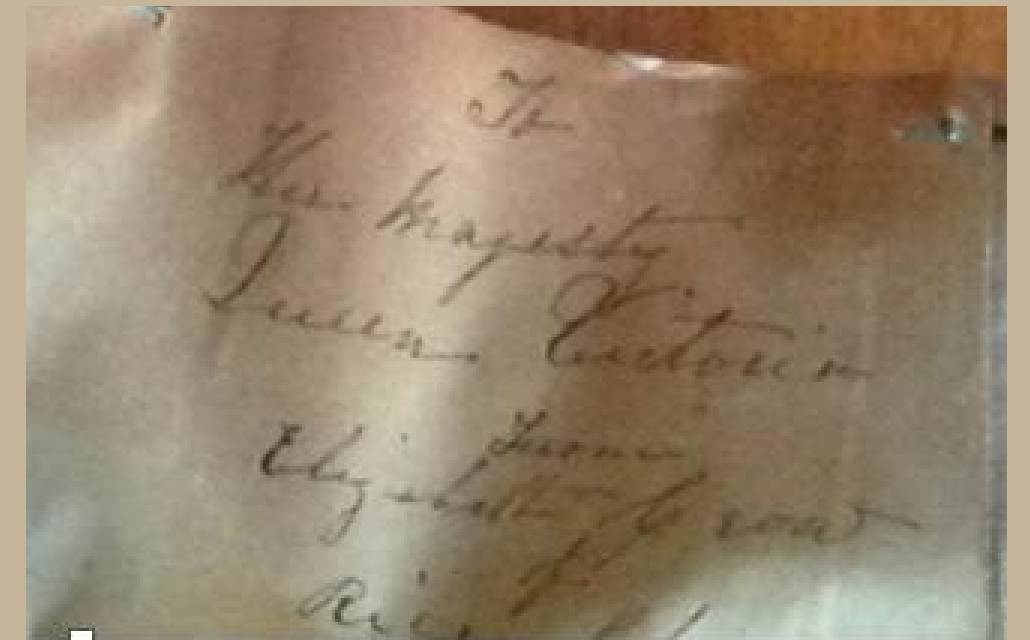 To
Her Majesty
Queen Victoria
From
Elizabeth Crow
of